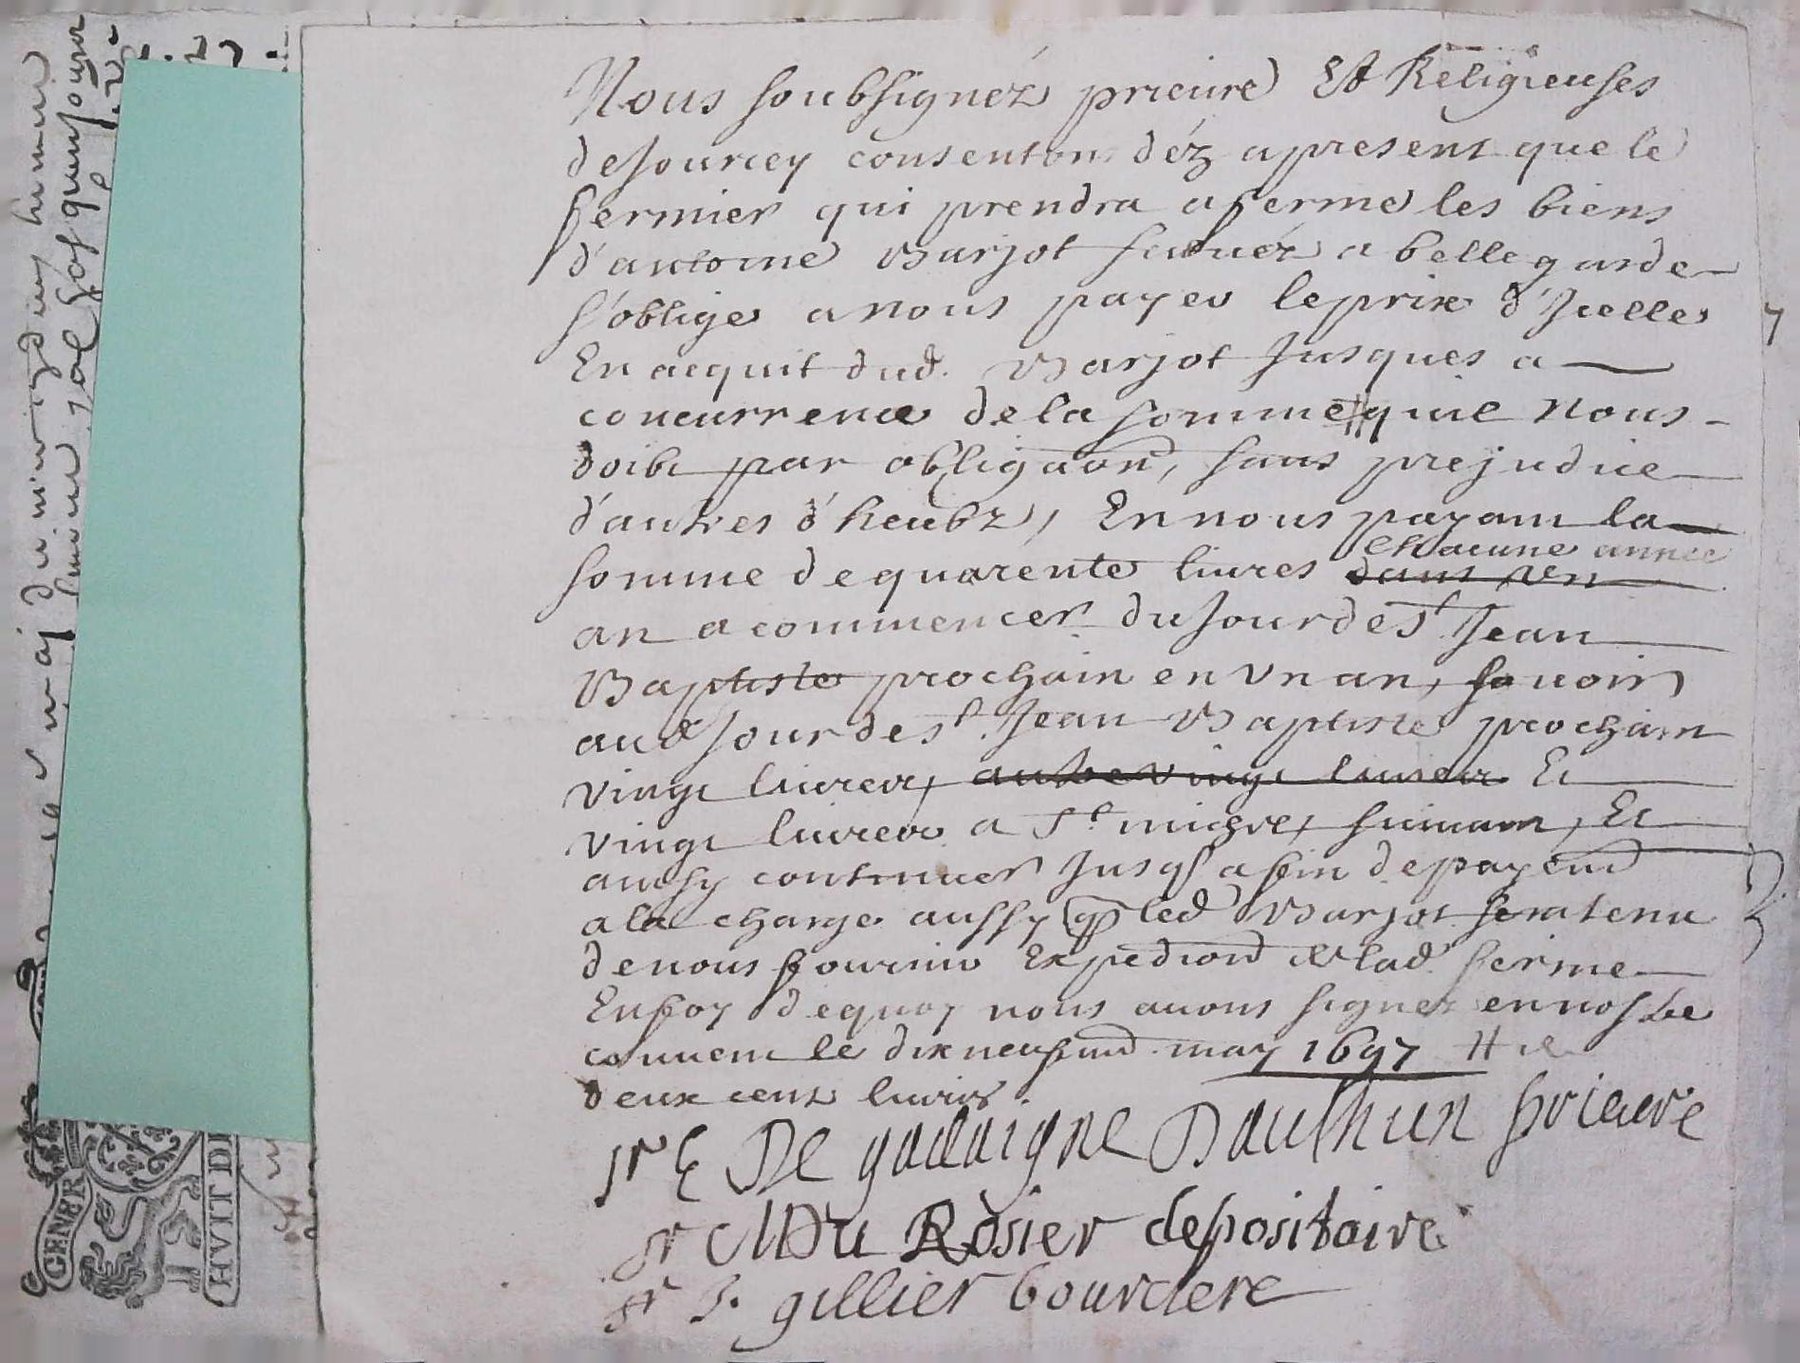 Nous soubsignéz prieure Et Religieuses
de Jourcey consentons déz apresent que le
fermier qui prendra aferme les biens
d'antoine Barjot scituéz a bellegarde
s'oblige a nous payer le prix d'Icelles
En acquit dud. Barjot Jusques a
concurrence de la somme # quil Nous
doibt par obligaon, sans prejudice
d'autres d'heubz, En nous payant la
chacune annee
somme de quarente livres dans un
an a commencer du Jour de St Jean
Baptiste prochain en Un an, savoir
aud Jour de St Jean Baptiste prochain
vingt livres, autre vingt livres Et
vingt livres a St michel, suivant, Et
ainsy continuer Jusqs a fin de payemt
a la charge aussy q led Barjot sera tenu
de nous fournir Expedion de lad. ferme
En foy de quoy nous avons signez en nostre
couvent le dix neufvme may 1697 # de
deux cent livres.
sr E De gadaigne Dauthun prieure
sr M Du Rosier depositaire
sr J. gillier boursiere
GENER
HVIT DE